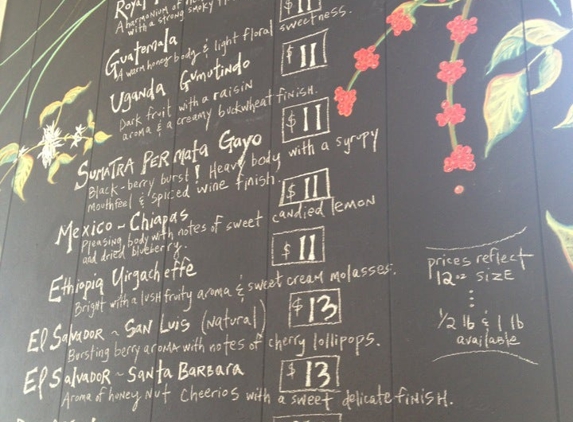 Royal
$11
A harmonium of
with a strong smoky
sweetness.
Guatemala
$11
A warm honey body & light floral
Uganda Gumutindo
$11
Dark fruit with a raisin
aroma & a creamy buckwheat finish.
SUMATRA PERMATA GAYO
$11
Black-berry burst! Heavy body with a syrupy
mouthfeel & spiced wine finish.
Mexico ~ Chiapas
$11
Pleasing body with notes of sweet candied lemon
and dried blueberry.
Ethiopia Yirgacheffe
Bright with a lush fruity aroma & sweet cream molasses.
El Salvador ~ San Luis (Natural)
$13
Bursting berry aroma with notes of cherry lollipops.
El Salvador ~ Santa Barbara
$13
Aroma of honey nut Cheerios with a sweet delicate finish.
prices reflect
12 oz SIZE
1/2 lb & 1 lb
available